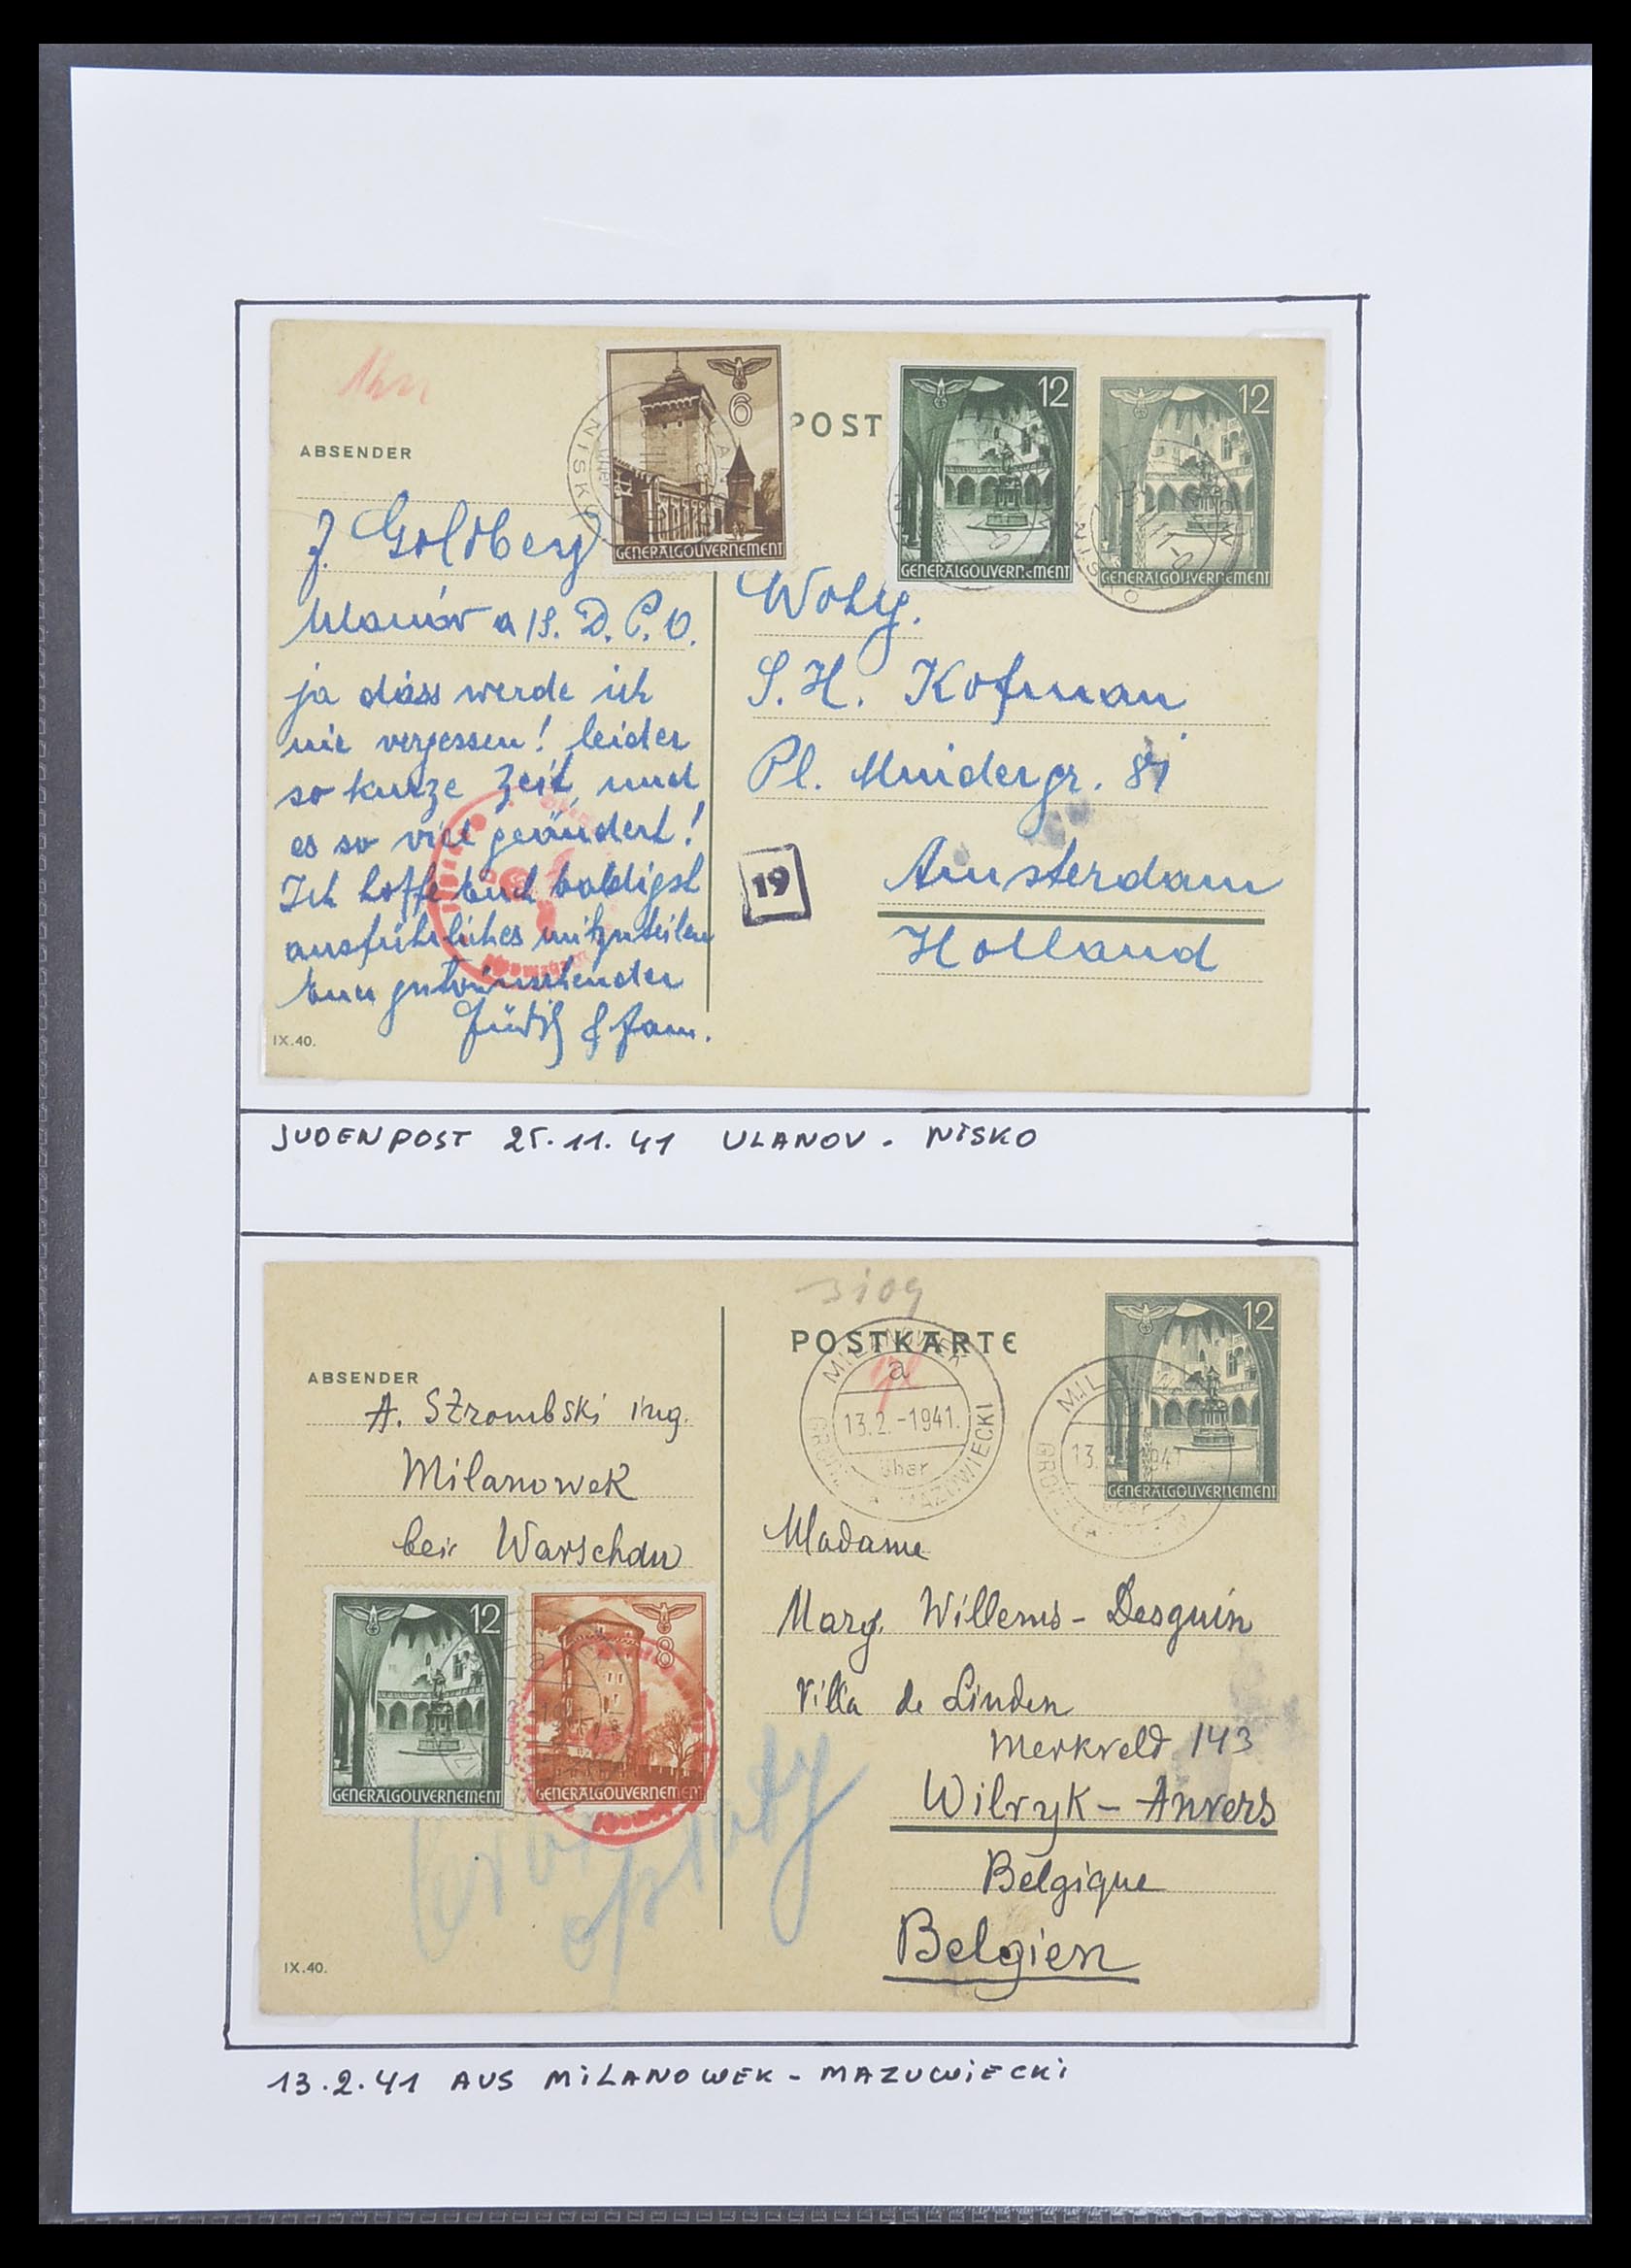 ABSENDER
6
GENERALGOUVERNEMENT
POST
12
GENERALGOUVERNEMENT
12
GENERALGOUVERNEMENT
NISKO
J Goldberg
Ulanów a/S. D. P. O.
ja dass werde ich
nie vergessen! leider
so kurze Zeit, und
es so viel geändert!
Ich hoffe Euch baldigst
ausführliches mitzuteilen
Euer gutwünschender
& fam.
IX.40.
S. H. Kofman
Pl. Muidergr.
19
Amsterdam
Holland
JUDENPOST 25.11.41 ULANOV - NISKO
3109
POSTKARTE
12
GENERALGOUVERNEMENT
MILANOWEK
a
13.2.-1941.
MAZOWIECKI
ABSENDER
A. Szrombski ing.
Milanowek
bei Warschau
12
GENERALGOUVERNEMENT
8
GENERALGOUVERNEMENT
IX.40.
Madame
Marg. Willems - Desguin
Villa de Linden
Merkveld 143
Wilryk - Anvers
Belgique
Belgien
13.2.41 AUS MILANOWEK - MAZUWIECKI